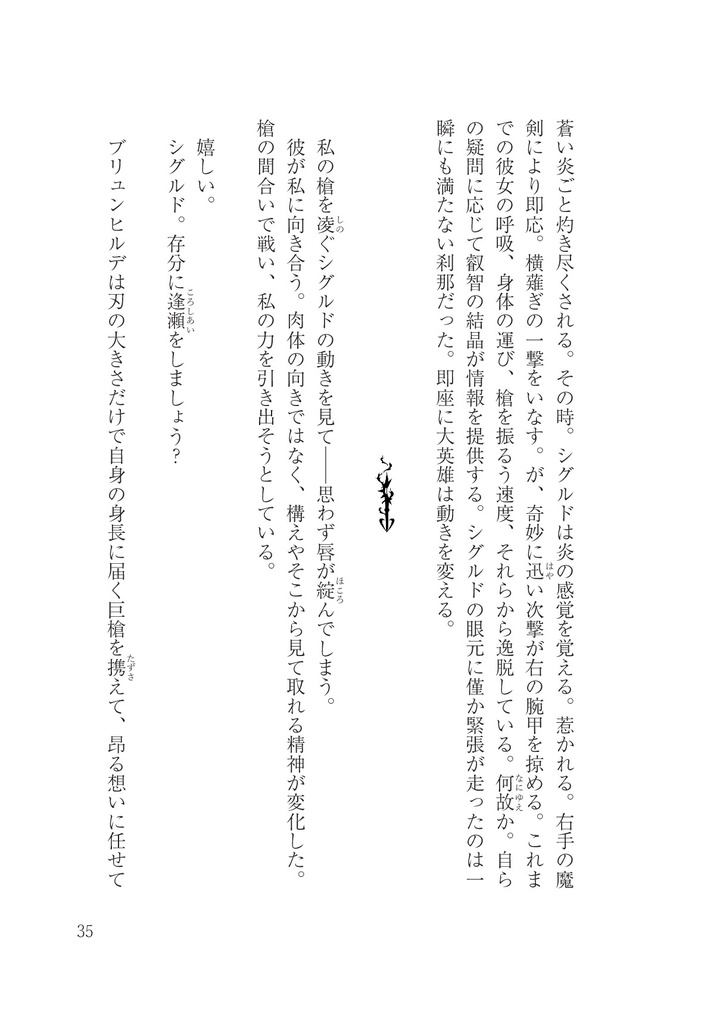 蒼い炎ごと灼き尽くされる。その時。シグルドは炎の感覚を覚える。惹かれる。右手の魔
剣により即応。横薙ぎの一撃をいなす。が、奇妙に迅い次撃が右の腕甲を掠める。これま
での彼女の呼吸、身体の運び、槍を振るう速度、それらから逸脱している。何故か。自ら
の疑問に応じて叡智の結晶が情報を提供する。シグルドの眼元に僅か緊張が走ったのは一
瞬にも満たない刹那だった。即座に大英雄は動きを変える。
私の槍を凌ぐシグルドの動きを見て――思わず唇が綻んでしまう。
彼が私に向き合う。肉体の向きではなく、構えやそこから見て取れる精神が変化した。
槍の間合いで戦い、私の力を引き出そうとしている。
嬉しい。
シグルド。存分に逢瀬をしましょう？
ブリュンヒルデは刃の大きさだけで自身の身長に届く巨槍を携えて、昂る想いに任せて
はや
なにゆえ
しの
ほころ
ころしあい
たずさ
35